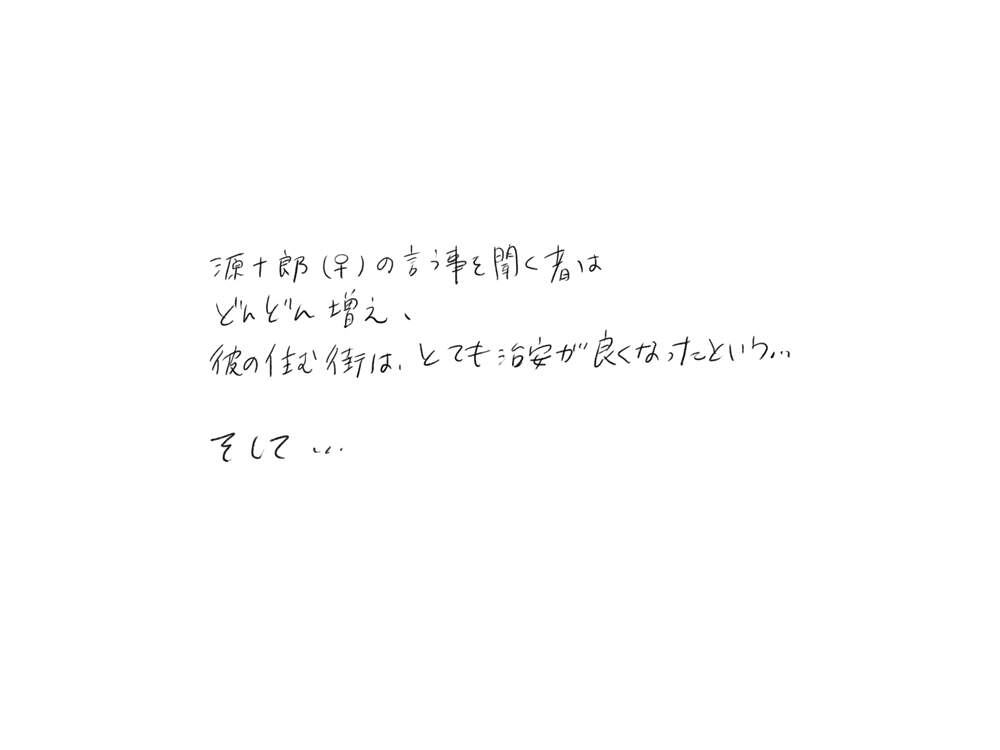 源十郎(♀)の言う事を聞く者は
どんどん増え、
彼の住む街は、とても治安が良くなったという…
そして…